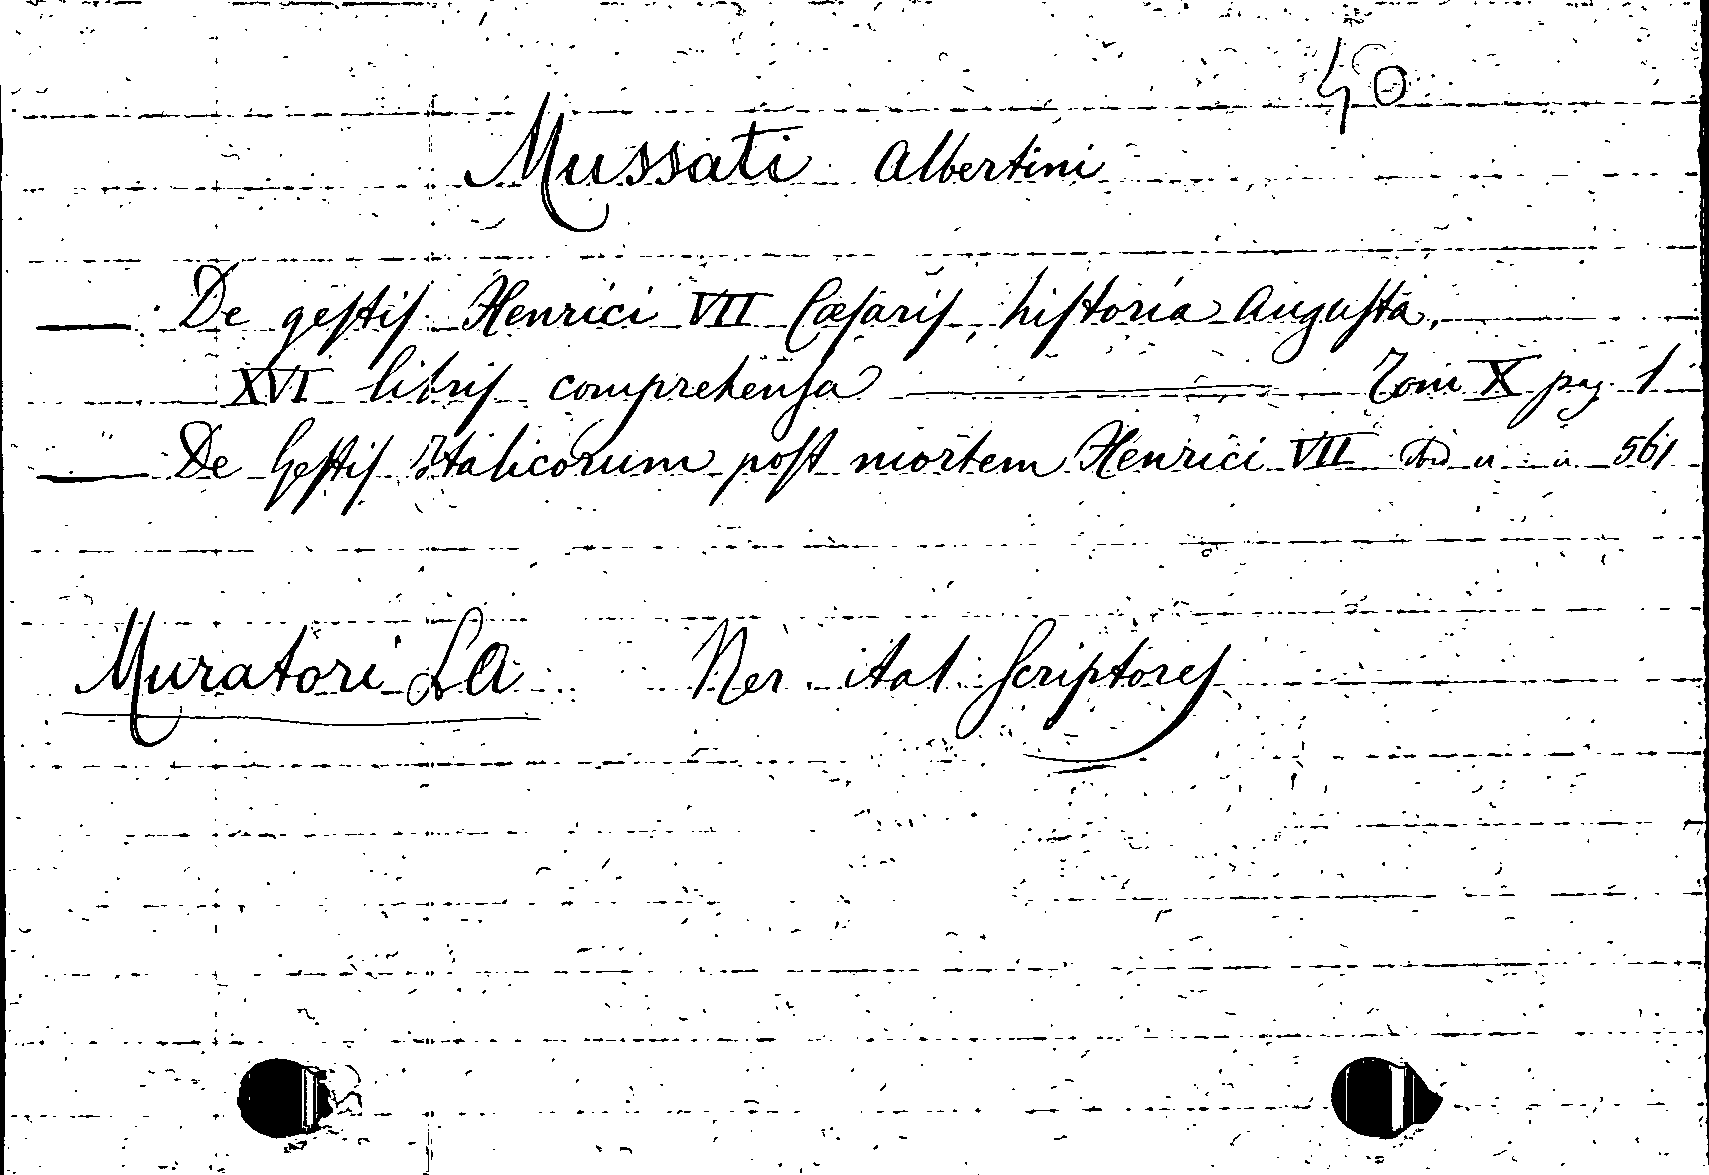 40
Mussati Albertini
— De geſtiſ Henrici VII Cæſariſ, hiſtoria Auguſta,
XVI libriſ comprehenſa — Tom X pag. 1
— De Geſtiſ Italicorum poſt mortem Henrici VII " " 561
Muratori LA Rer ital Scriptoreſ